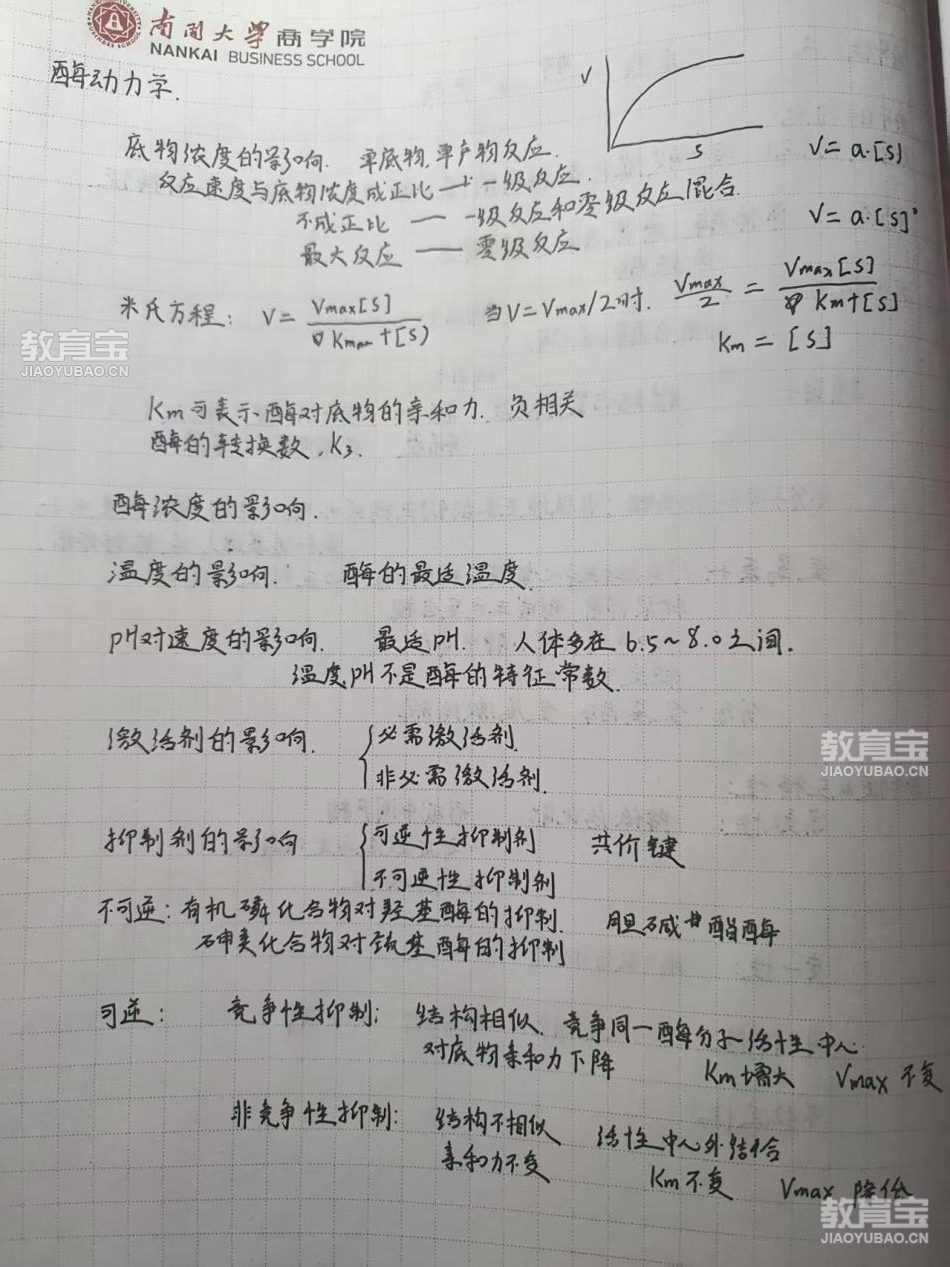 南開大學 商学院
NANKAI BUSINESS SCHOOL
酶动力学.
V
S
底物浓度的影响. 单底物,单产物反应.
V= a·[S]
反应速度与底物浓度成正比 —— 一级反应.
不成正比 —— 一级反应和零级反应混合.
V= a·[S]°
最大反应 —— 零级反应
米氏方程: V= Vmax[S] / Km +[S] 当V=Vmax/2时. Vmax/2 = Vmax[S] / Km+[S]
Km = [S]
教育宝
JIAOYUBAO.CN
Km可表示酶对底物的亲和力. 负相关
酶的转换数, K3.
酶浓度的影响.
温度的影响. 酶的最适温度.
pH对速度的影响. 最适pH. 人体多在 6.5~8.0之间.
温度,pH不是酶的特征常数.
激活剂的影响. { 必需激活剂.
非必需激活剂.
教育宝
JIAOYUBAO.CN
抑制剂的影响 { 可逆性抑制剂 共价键
不可逆性抑制剂
不可逆: 有机磷化合物对羟基酶的抑制. 胆碱酯酶
砷类化合物对巯基酶的抑制
可逆: 竞争性抑制: 结构相似. 竞争同一酶分子活性中心.
对底物亲和力下降 Km增大 Vmax 不变
非竞争性抑制: 结构不相似 活性中心外结合
亲和力不变 Km不变 Vmax 降低
教育宝
JIAOYUBAO.CN